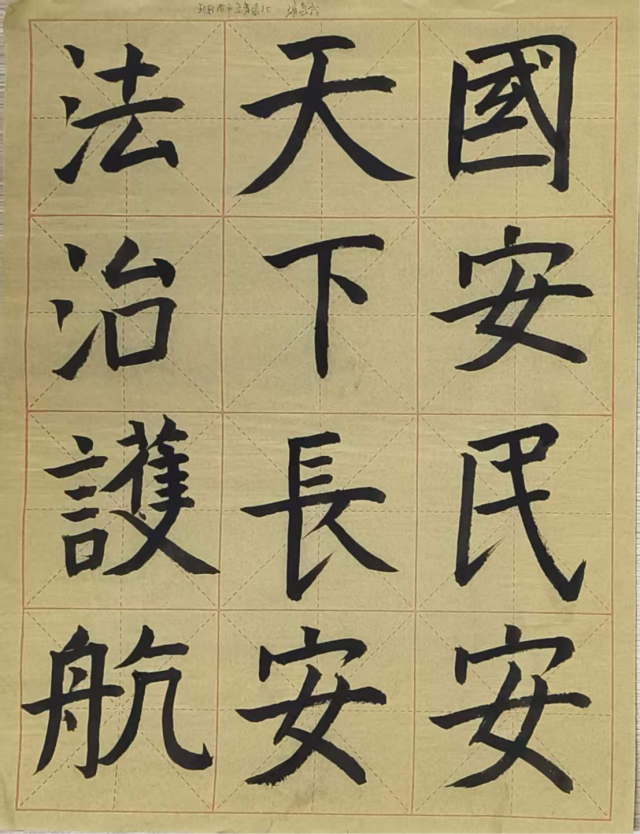 國安民安
天下長安
法治護航